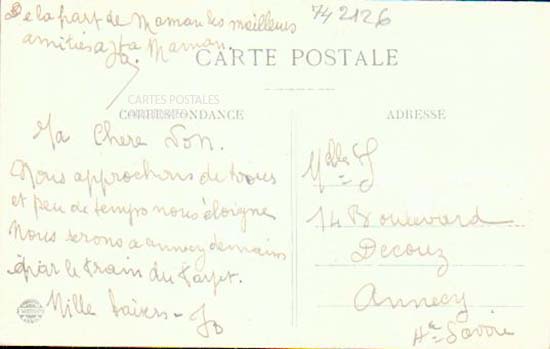 De la part de Maman les meilleures
amitiés a ta Maman.
742126
CARTE POSTALE
CARTES POSTALES
CORRESPONDANCE
ADRESSE
Ma Chere
Nous approchons de vous
et peu de temps nous éloigne
Nous serons a annecy demain
par le train du Fayet.
Mille baisers -
Mlle
14 Boulevard
Decouz
Annecy
Hte Savoie